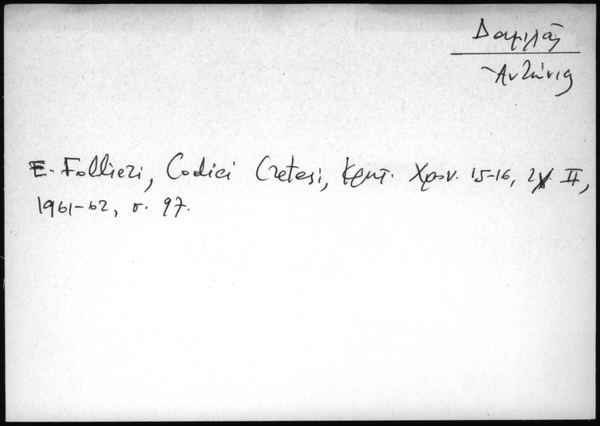 Δαμιλᾶς
Ἀντώνιος
E. Follieri, Codici Cretesi, Κρητ. Χρον. 15-16, II,
1961-62, σ. 97.